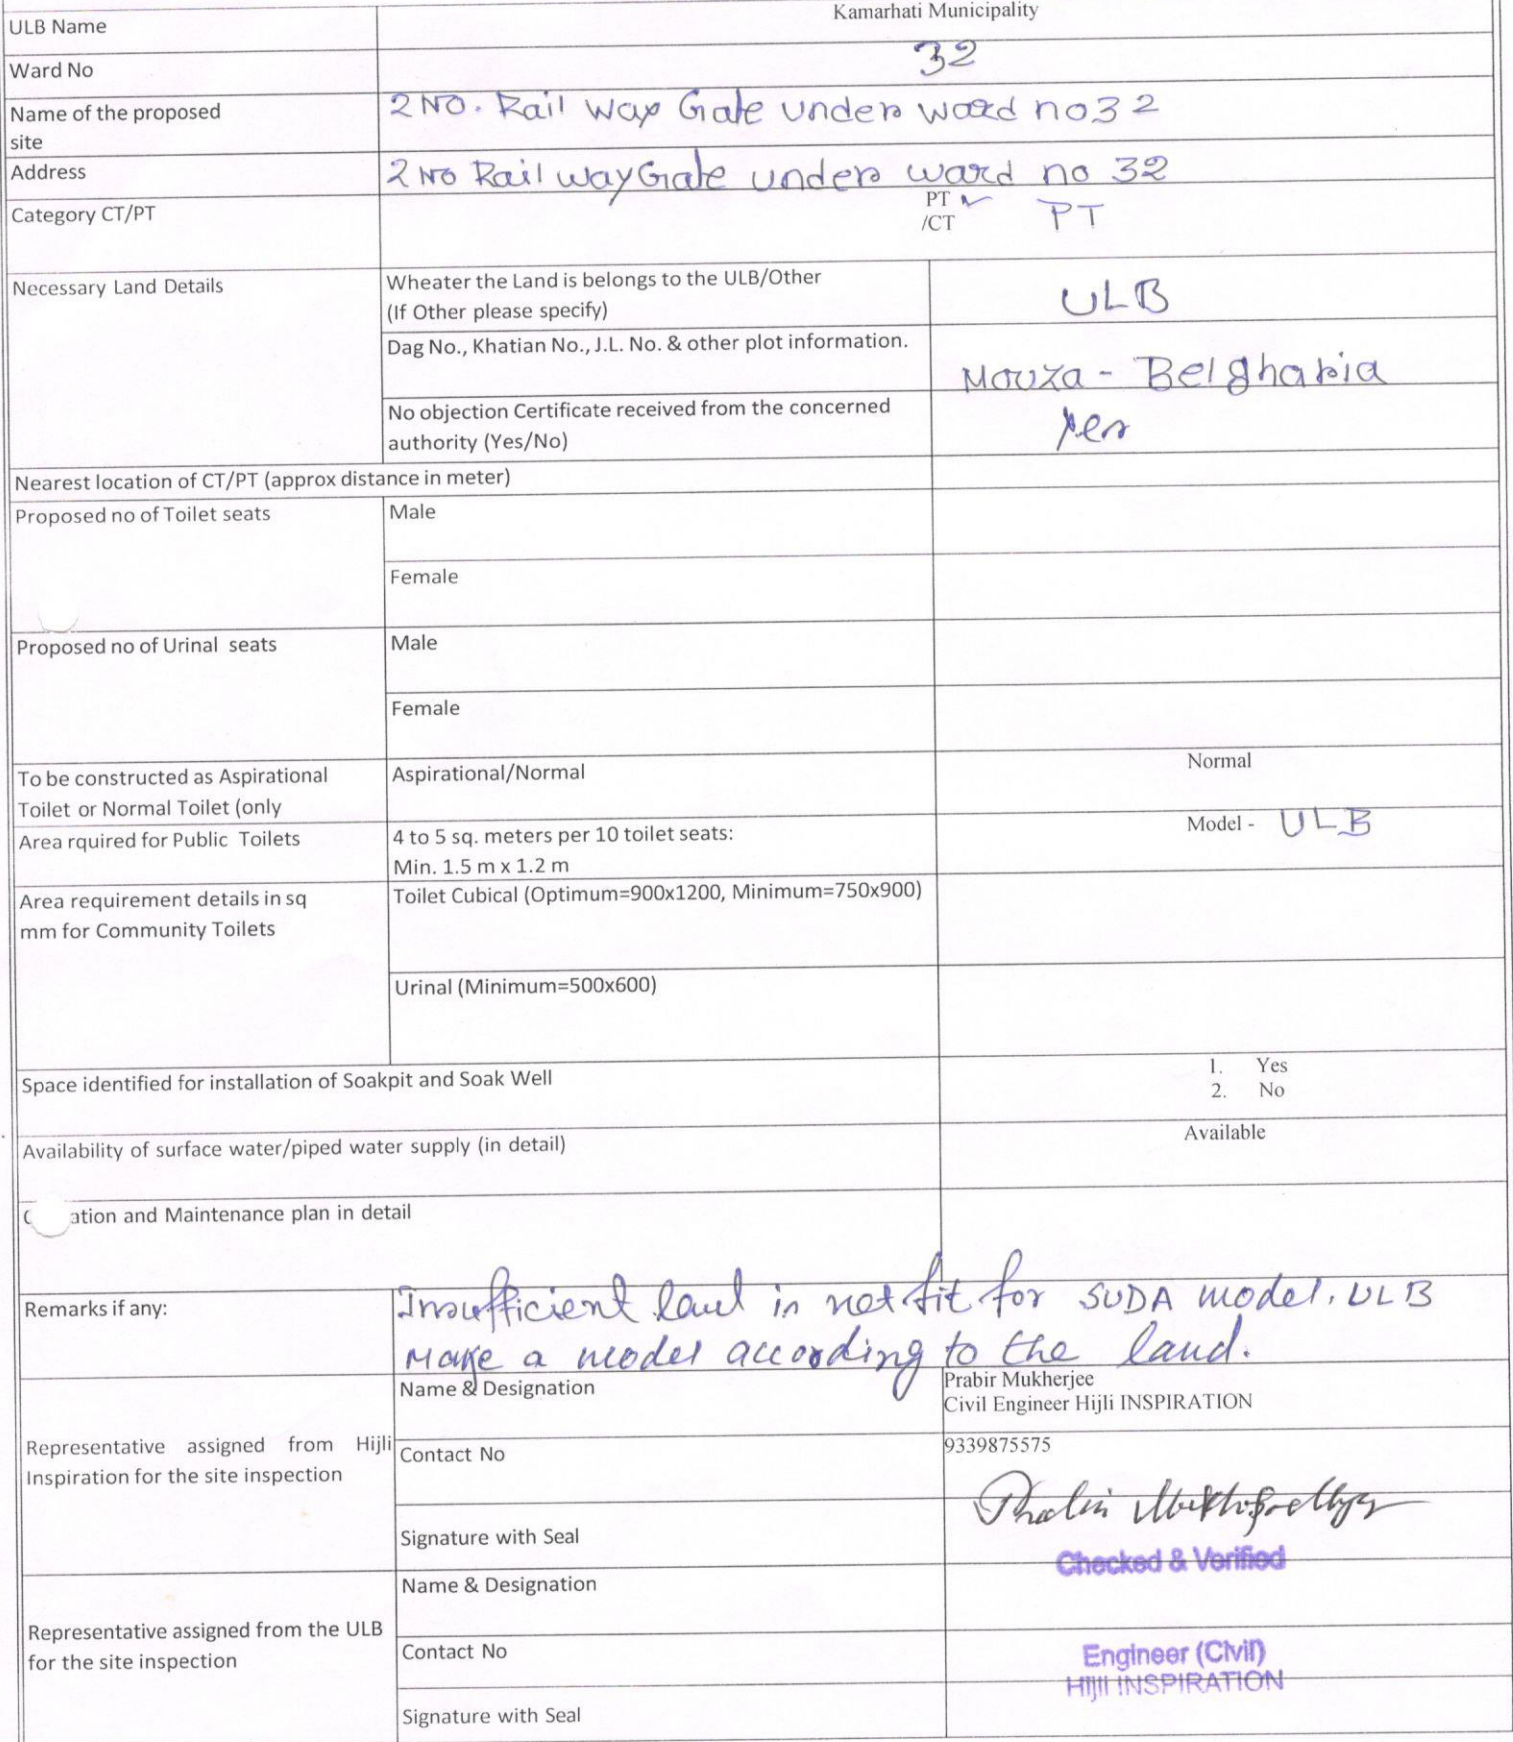 ULB Name
Kamarhati Municipality
Ward No
32
Name of the proposed
site
2 NO. Rail Way Gate under ward no 32
Address
2 NO Railway Gate under ward no 32
Category CT/PT
PT ✓ PT
/CT
Necessary Land Details
Wheater the Land is belongs to the ULB/Other
(If Other please specify)
ULB
Dag No., Khatian No., J.L. No. & other plot information.
Mouza - Belgharia
No objection Certificate received from the concerned
authority (Yes/No)
Yes
Nearest location of CT/PT (approx distance in meter)
Proposed no of Toilet seats
Male
Female
Proposed no of Urinal seats
Male
Female
To be constructed as Aspirational
Toilet or Normal Toilet (only
Aspirational/Normal
Normal
Area rquired for Public Toilets
4 to 5 sq. meters per 10 toilet seats:
Min. 1.5 m x 1.2 m
Model - ULB
Area requirement details in sq
mm for Community Toilets
Toilet Cubical (Optimum=900x1200, Minimum=750x900)
Urinal (Minimum=500x600)
Space identified for installation of Soakpit and Soak Well
1. Yes
2. No
Availability of surface water/piped water supply (in detail)
Available
ation and Maintenance plan in detail
Remarks if any:
Insufficient land is not fit for SUDA model. ULB
Make a model according to the land.
Representative assigned from Hijli
Inspiration for the site inspection
Name & Designation
Prabir Mukherjee
Civil Engineer Hijli INSPIRATION
Contact No
9339875575
Signature with Seal
Checked & Verified
Representative assigned from the ULB
for the site inspection
Name & Designation
Contact No
Engineer (Civil)
Hijli INSPIRATION
Signature with Seal